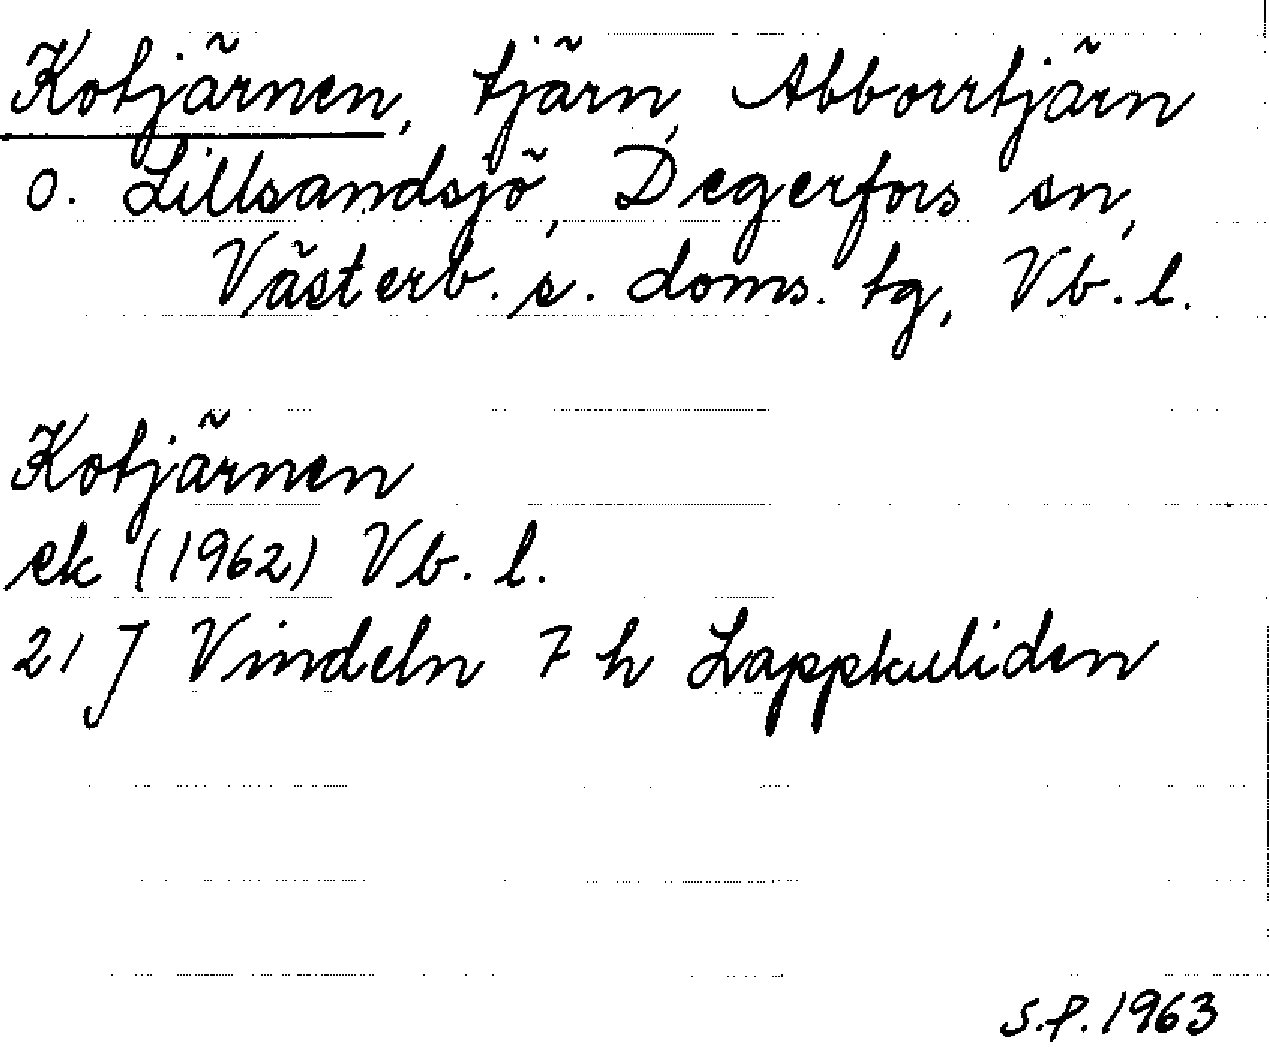 Kotjärnen, tjärn, Abborrtjärn
o. Lillsandsjö, Degerfors sn,
Västerb. s. doms. tg, Vb. l.
Kotjärnen
ek (1962) Vb. l.
21 J Vindeln 7 h Lappkuliden
S.f. 1963